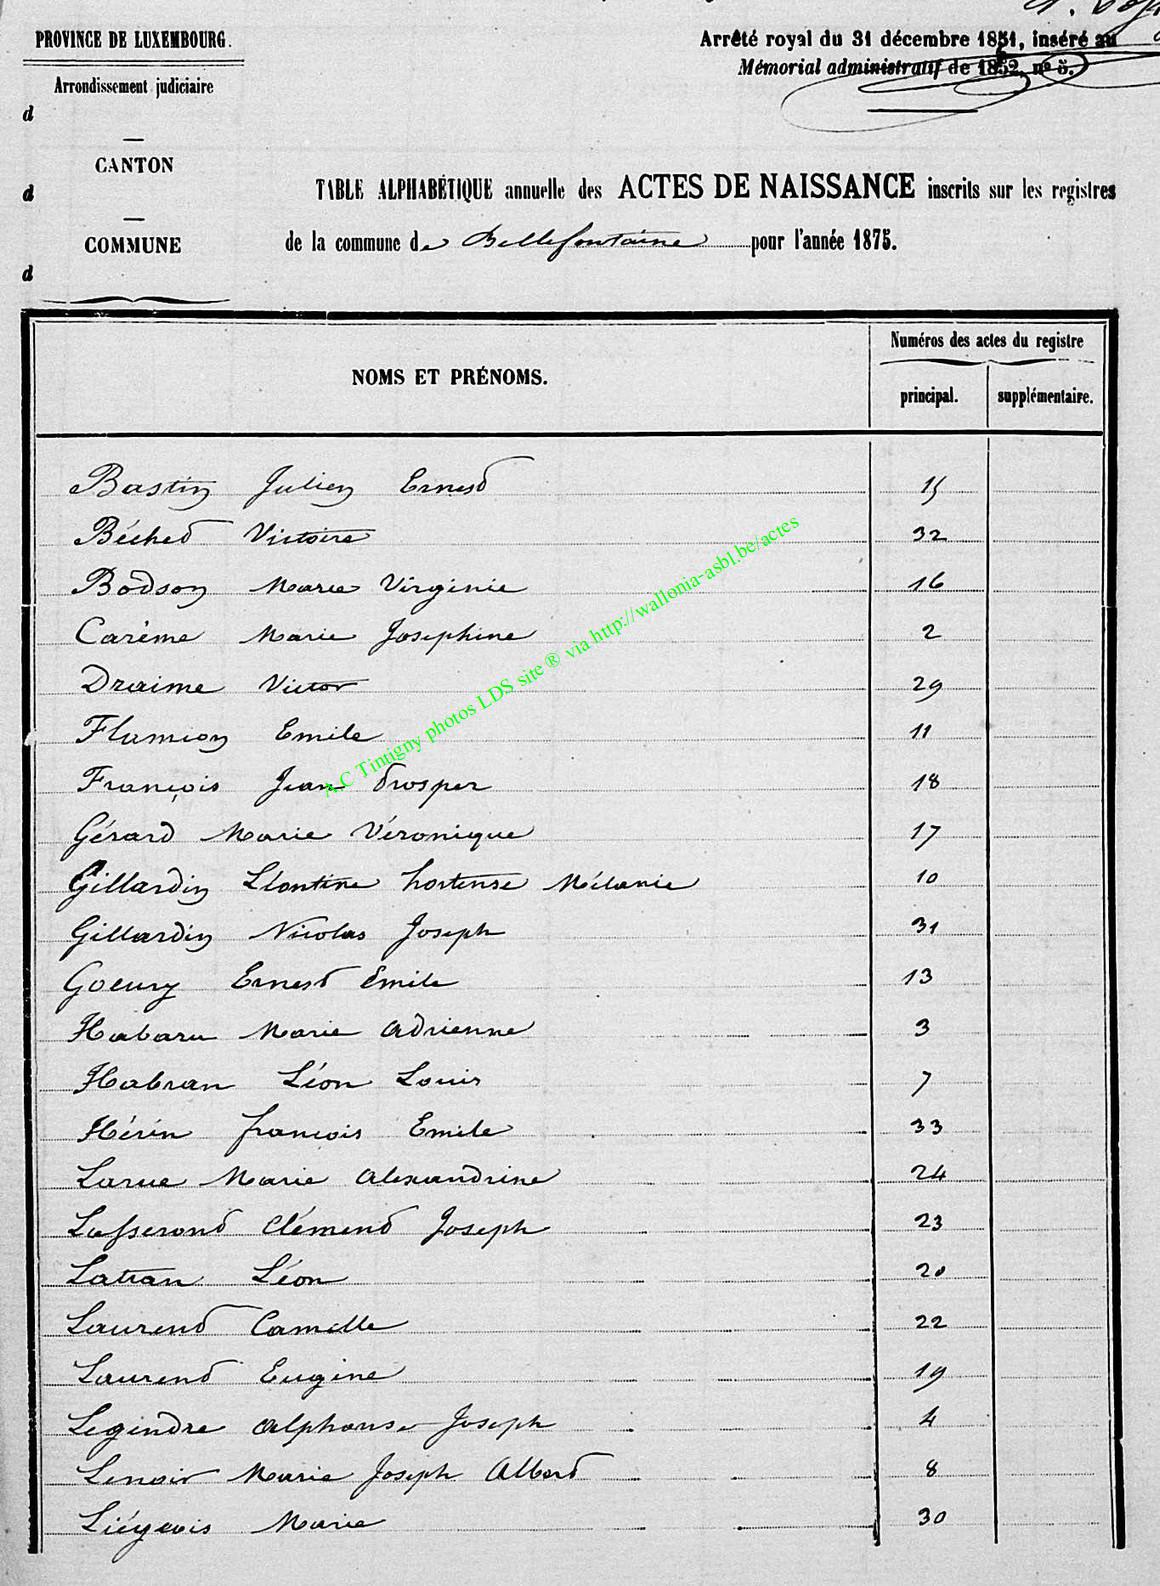 PROVINCE DE LUXEMBOURG.
Arrondissement judiciaire
d
CANTON
d
COMMUNE
d
Arrêté royal du 31 décembre 1851, inséré au
Mémorial administratif de 1852, nº 5.
TABLE ALPHABÉTIQUE annuelle des ACTES DE NAISSANCE inscrits sur les registres
de la commune de Bellefontaine pour l'année 1875.
NOMS ET PRÉNOMS.
Numéros des actes du registre
principal.
supplémentaire.
Bastin Julien Ernest 15
Béchet Victoire 32
Bodson Marie Virginie 16
Carème Marie Josephine 2
Draime Victor 29
Flamion Emile 11
François Jean Prosper 18
Gérard Marie Véronique 17
Gillardin Léontine hortense Mélanie 10
Gillardin Nicolas Joseph 31
Goeury Ernest Emile 13
Habaru Marie Adrienne 3
Habran Léon Louis 7
Hérin françois Emile 33
Larue Marie Alexandrine 24
Lasserond Clément Joseph 23
Latran Léon 20
Laurent Camille 22
Laurent Eugène 19
Legendre Alphonse Joseph 4
Lenoir Marie Joseph Albert 8
Liégeois Marie 30
A.C Tintigny photos LDS site ® via http://wallonia-asbl.be/actes